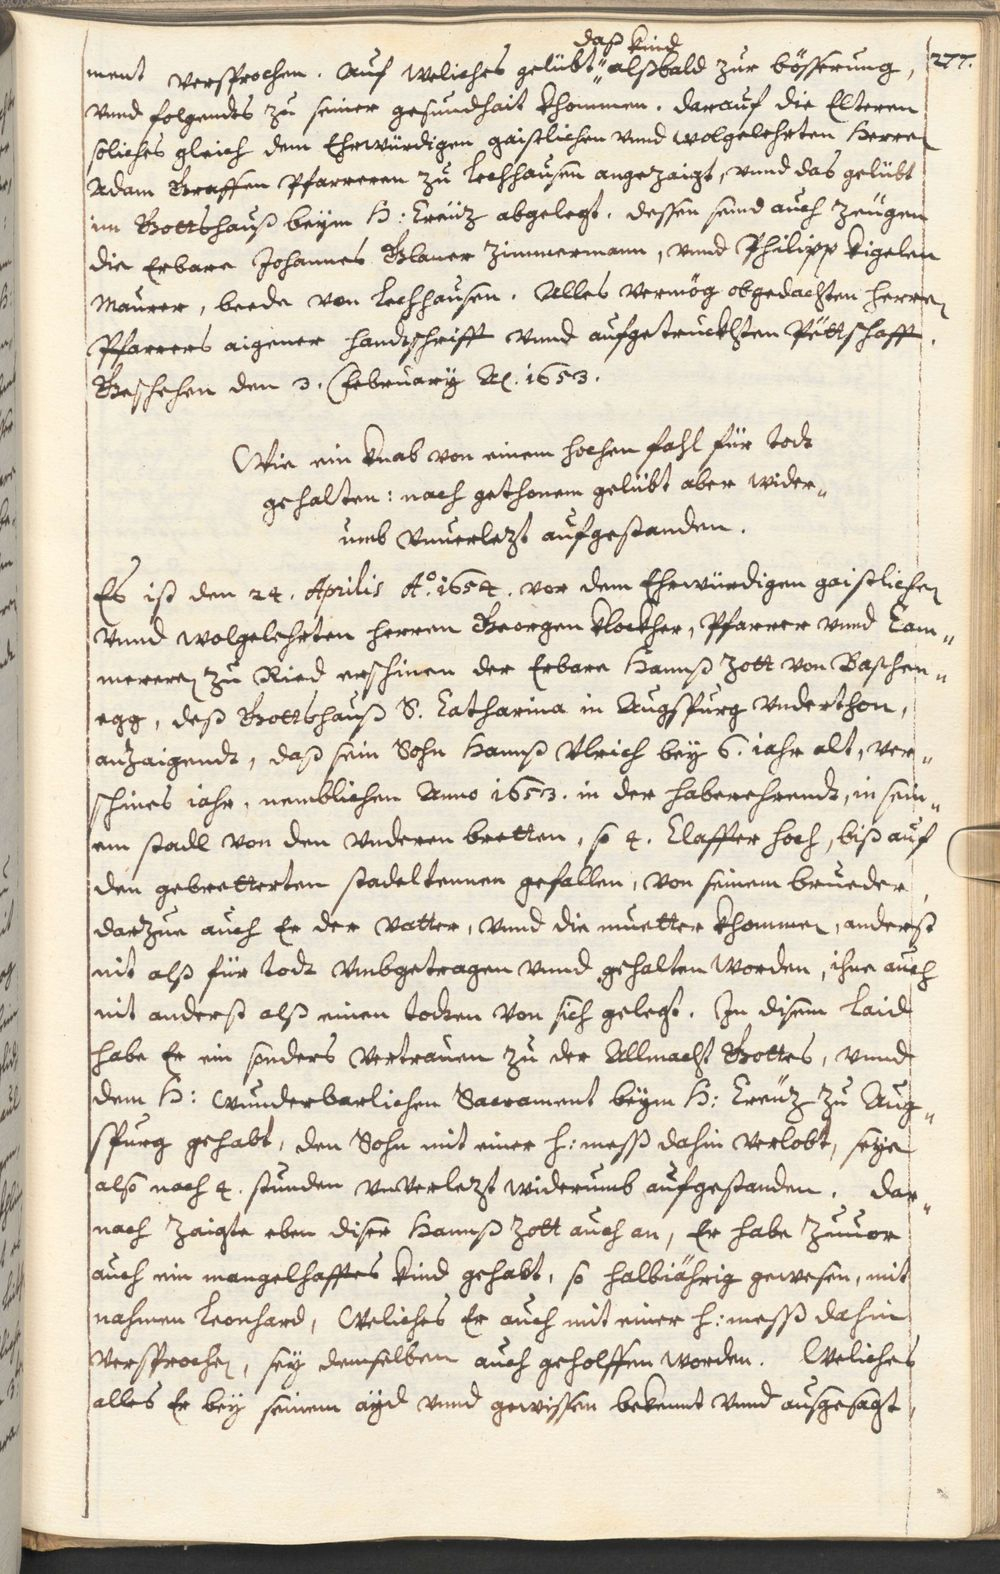 daß kind
277.
ment versprochen. Auf weliches gelübt alßbald zur bösserung,
vnnd folgendts zu seiner gesundhait khommen. darauf die Elteren
soliches gleich dem Ehrwürdigen gaistlichen vnnd wolgelehrten Herren
Adam Graffen Pfarreren zu Lechhausen angezaigt, vnnd das gelübt
im Gottshauß beym H: Creütz abgelegt. dessen seind auch Zeügen
die Erbare Johannes Glaner Zimmermann, vnnd Philipp Kigelen
Maurer, beede von Lechhausen. Alles vermög obgedachten herren
Pfarrers aigener handtschrifft vnnd aufgetruckhten Pëttschafft.
Geschehen den 3. February A. 1653.
Wie ein Knab von einem hochen fahl für todt
gehalten: nach gethonem gelübt aber wider„
umb vnuerlezt aufgestanden.
Es ist den 24. Aprilis Aº. 1654. vor dem Ehrwürdigen gaistlichen
vnnd wolgelehrten herren Georgen Klockher, Pfarrer vnnd Cam„
mereren zu Ried erschinen der Erbare Hannß Zott von Baschen„
egg, deß Gottshauß S. Catharina in Augspurg vnderthon,
anzaigendt, daß sein Sohn Hannß Vlrich bey 6. jahr alt, ver„
schines jahr, nemblichen Anno 1653. in der haberehrendt, in sein„
em stadl von den vnderen bretten, so 4. Claffter hoch, biß auf
den gebretterten stadeltennen gefallen, von seinem brueder,
darzue auch Er der vatter, vnnd die muetter khommen, anderst
nit alß für todt vmbgetragen vnnd gehalten worden, ihne auch
nit anderst alß einen todten von sich gelegt. In disem laid
habe Er ein sonders vertrauen zu der Allmacht Gottes, vnnd
dem H: wunderbarlichen Sacrament beym H: Creütz zu Aug„
spurg gehabt, den Sohn mit einer h: mess dahin verlobt, seye
also nach 4. stunden vnverlezt widerumb aufgestanden. Dar„
nach zaigte eben diser Hannß Zott auch an, Er habe zuuor
auch ein mangelhafftes kind gehabt, so halbjährig gewesen, mit
nahmen Leonhard, Weliches Er auch mit einer h: mess dahin
versprochen, sey demselben auch geholffen worden. Weliches
alles Er bey seinem äyd vnnd gewissen bekennt vnnd ausgesagt,